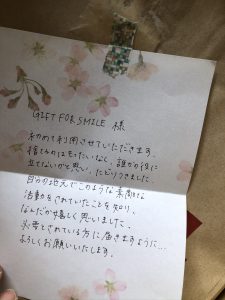 GIFT FOR SMILE 様
初めて利用させていただきます
捨てるのはもったいなく、誰かの役に
立てないかと思い、たどりつきました。
自分の地元でこのような素敵な
活動をされていたことを知り、
なんだか嬉しく思いました。
必要とされている方に届きますように…
よろしくお願いいたします。